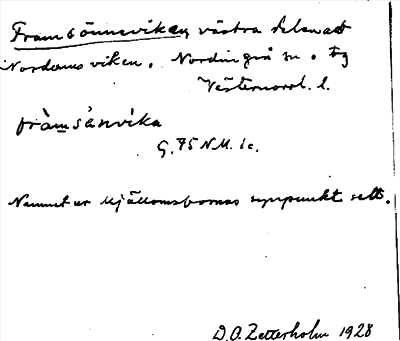 Framsönneviken, västra delen av
Nordomsviken. Nordingrå sn. Åg
Västernorrl. l.
främsånvika
G. 75 N.M. 1c.
Namnet ur Mjällomsbornas synpunkt sett.
D.O. Zetterholm 1928